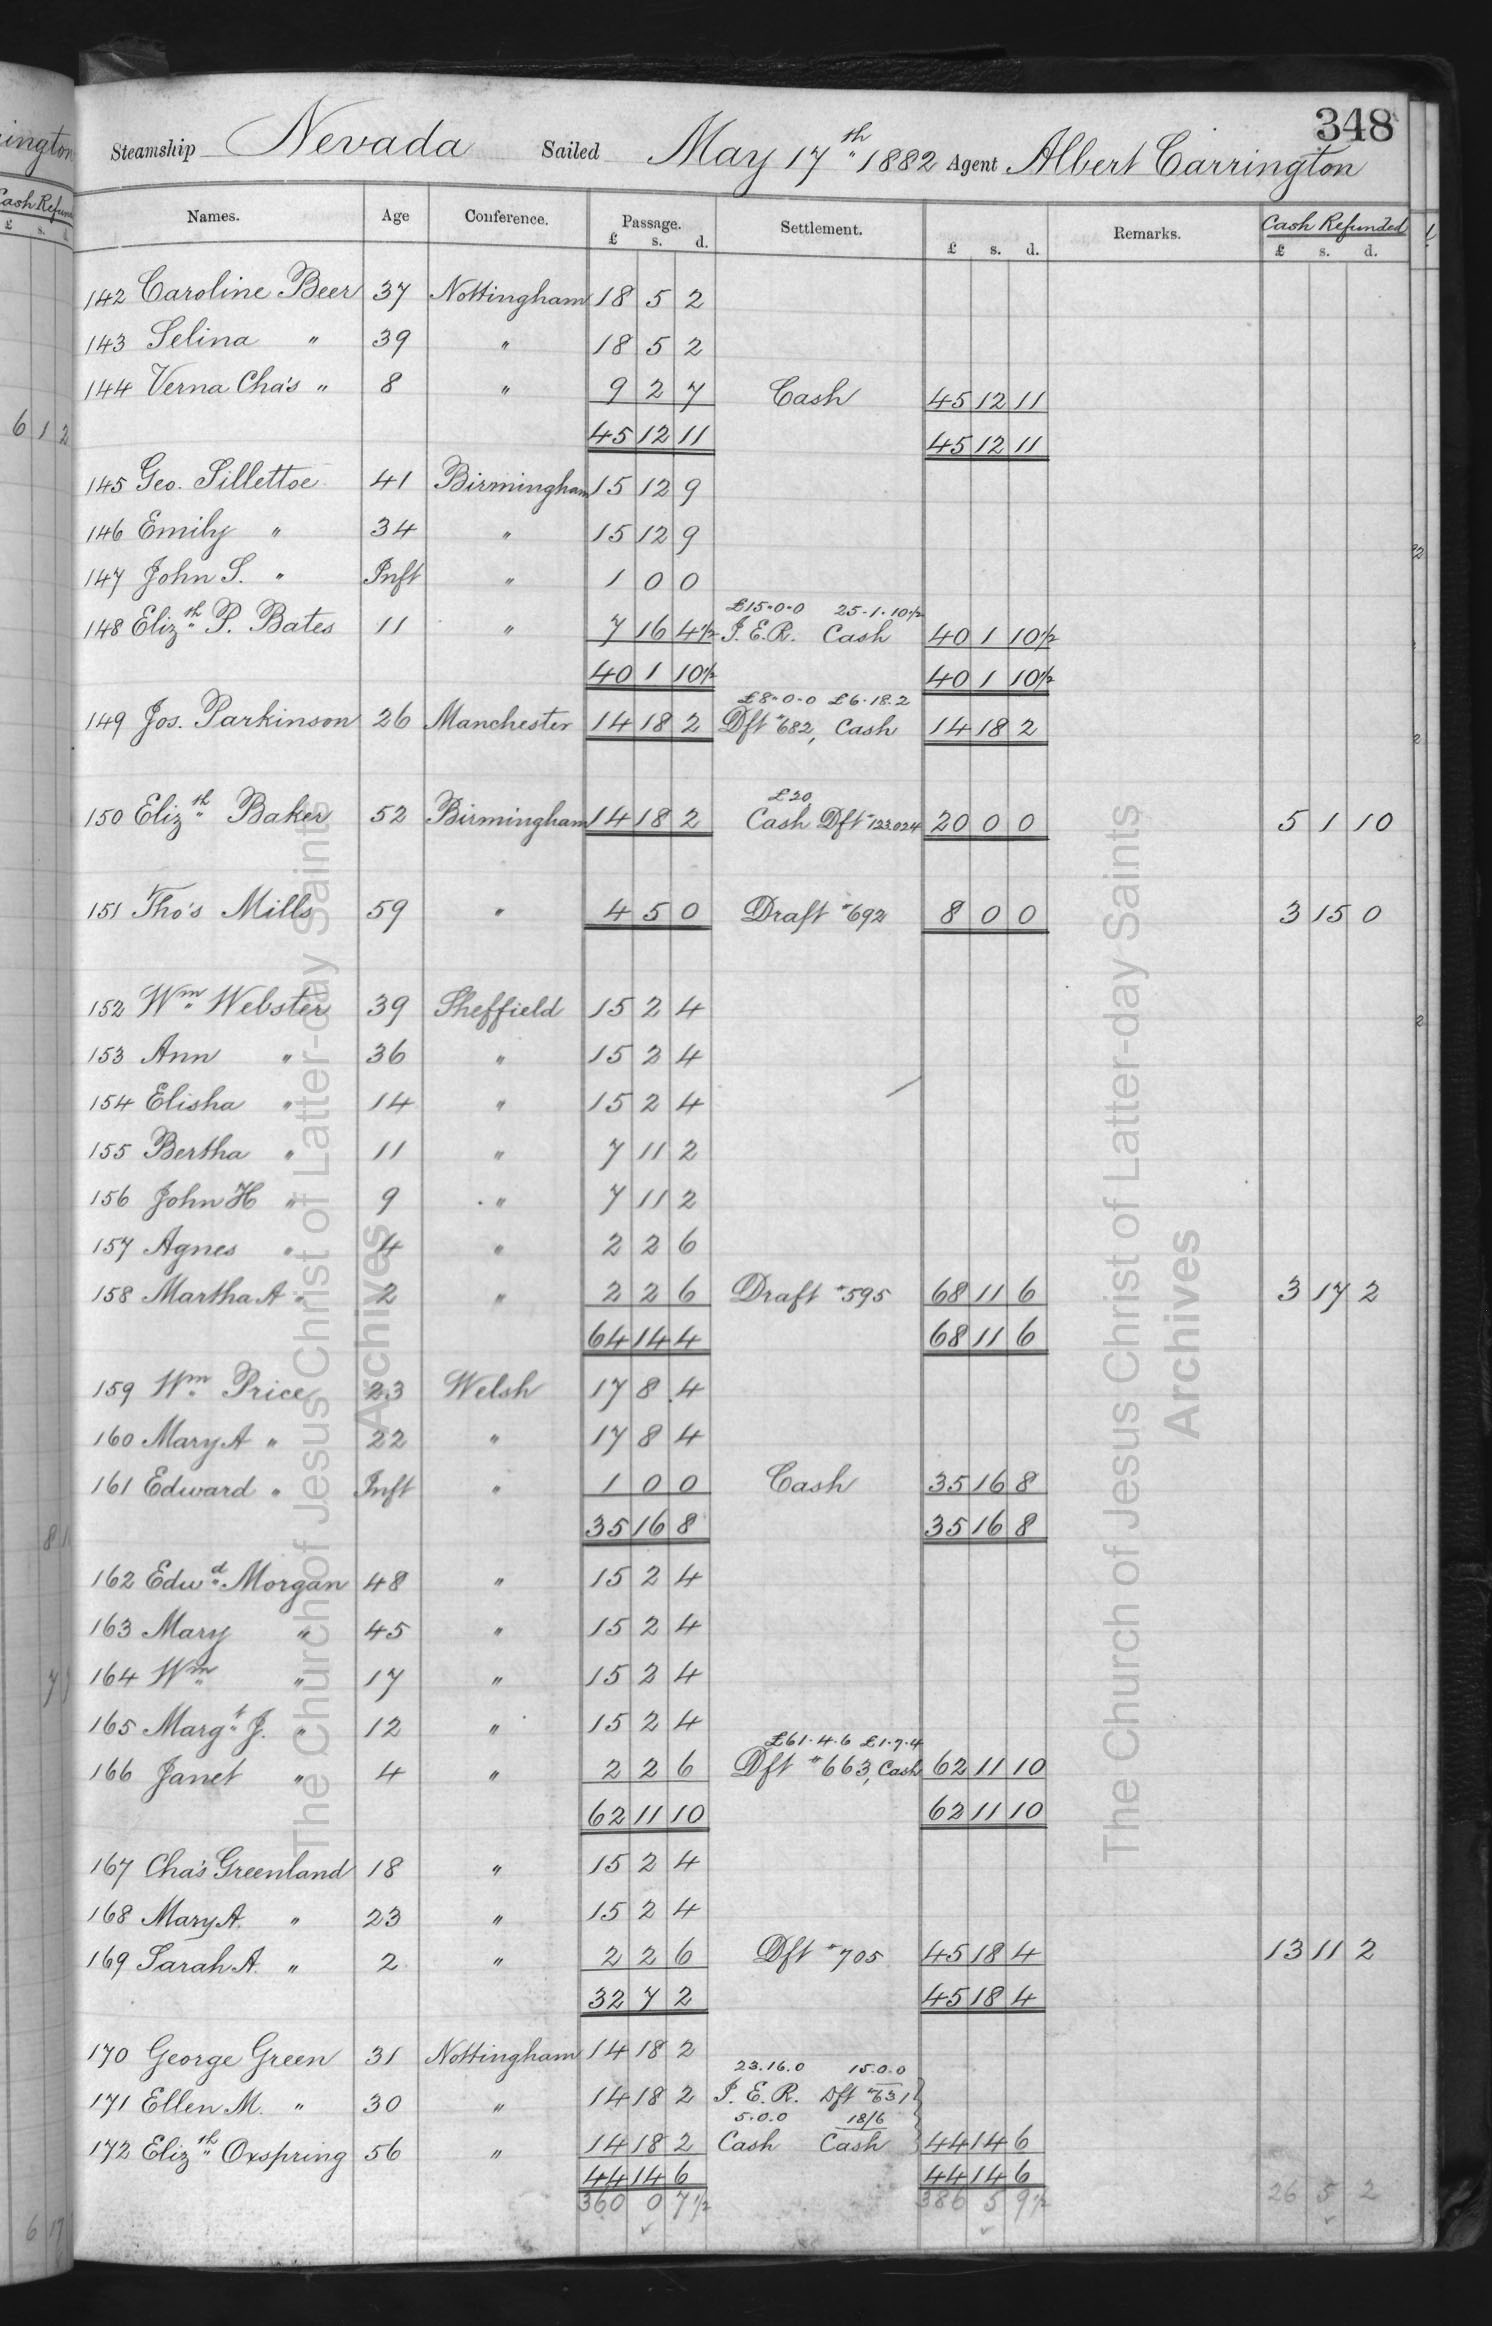 348
Steamship Nevada Sailed May 17th 1882 Agent Albert Carrington
Names. Age Conference. Passage. Settlement. Remarks. Cash Refunded
£ s. d. £ s. d. £ s. d.
142 Caroline Beer 37 Nottingham 18 5 2
143 Selina " 39 " 18 5 2
144 Verna Cha's " 8 " 9 2 7 Cash 45 12 11
45 12 11 45 12 11
145 Geo. Sillettoe 41 Birmingham 15 12 9
146 Emily " 34 " 15 12 9
147 John S. " Inft " 1 0 0
£15-0-0 25-1-10½
148 Elizth P. Bates 11 " 7 16 4½ I.E.R. Cash 40 1 10½
40 1 10½ 40 1 10½
£8-0-0 £6-18.2
149 Jos. Parkinson 26 Manchester 14 18 2 Dft #682, Cash 14 18 2
£20
150 Elizth Baker 52 Birmingham 14 18 2 Cash Dft #123024 20 0 0 5 1 10
151 Tho's Mills 59 " 4 5 0 Draft #692 8 0 0 3 15 0
152 Wm Webster 39 Sheffield 15 2 4
153 Ann " 36 " 15 2 4
154 Elisha " 14 " 15 2 4
155 Bertha " 11 " 7 11 2
156 John H " 9 " 7 11 2
157 Agnes " 4 " 2 2 6
158 Martha A " 2 " 2 2 6 Draft #595 68 11 6 3 17 2
64 14 4 68 11 6
159 Wm Price 23 Welsh 17 8 4
160 Mary A " 22 " 17 8 4
161 Edward " Inft " 1 0 0 Cash 35 16 8
35 16 8 35 16 8
162 Edwd Morgan 48 " 15 2 4
163 Mary " 45 " 15 2 4
164 Wm " 17 " 15 2 4
165 Margt J. " 12 " 15 2 4
£61-4-6 £1-7-4
166 Janet " 4 " 2 2 6 Dft #663, Cash 62 11 10
62 11 10 62 11 10
167 Cha's Greenland 18 " 15 2 4
168 Mary A. " 23 " 15 2 4
169 Sarah A. " 2 " 2 2 6 Dft #705 45 18 4 13 11 2
32 7 2 45 18 4
170 George Green 31 Nottingham 14 18 2
23.16.0 15.0.0
171 Ellen M. " 30 " 14 18 2 I.E.R. Dft #631
5.0.0 18/6
172 Elizth Oxspring 56 " 14 18 2 Cash Cash 44 14 6
44 14 6 44 14 6
360 0 7½ 386 5 9½ 26 5 2
The Church of Jesus Christ of Latter-day Saints
Archives
The Church of Jesus Christ of Latter-day Saints
Archives